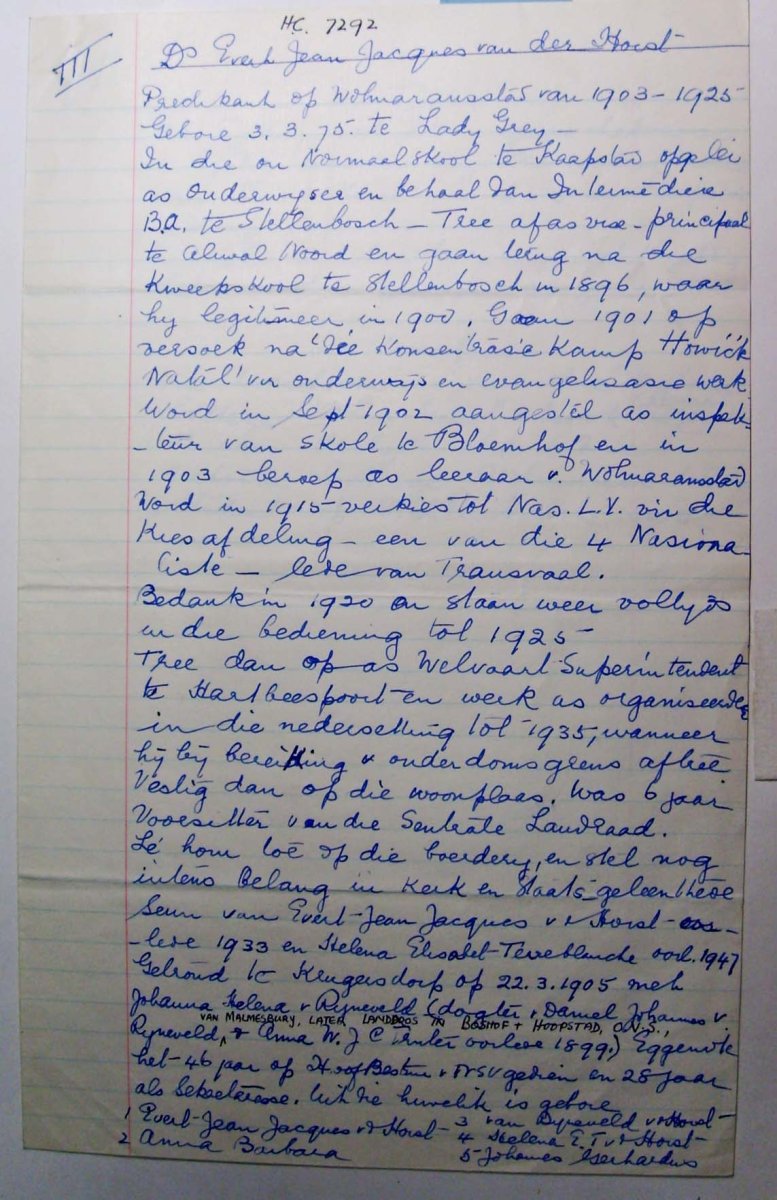 H.C. 7292
III
Ds Evert Jean Jacques van der Horst
Predikant op Wolmaransstad van 1903 – 1925
Gebore 3.3.75. te Lady Grey –
In die ou Normaalskool te Kaapstad opgelei
as onderwyser en behaal dan Intermediêre
B.A. te Stellenbosch – Tree af as vise-principaal
te Aliwal Noord en gaan terug na die
Kweekskool te Stellenbosch in 1896, waar
hy legitimeer in 1900. Gaan 1901 op
versoek na die Konsentrasie Kamp Howick
Natal vir onderwys en evangelisasie werk
Word in Sept 1902 aangestel as inspek-
-teur van skole te Bloemhof en in
1903 beroep as leeraar v. Wolmaransstad
Word in 1915 verkies tot Nas. L.V. vir die
Kiesafdeling – een van die 4 Nasiona-
liste – lede van Transvaal.
Bedank in 1920 en staan weer voltyds
in die bediening tot 1925
Tree dan op as Welvaart-Superintendent
te Hartbeespoort en werk as organiseerder
in die nedersetting tot 1935, wanneer
hy by bereiking v ouderdomsgrens aftree
Vestig dan op die woonplaas. Was 6 jaar
Voorsitter van die Sentrale Landraad.
Lê hom toe op die boerdery, en stel nog
intens Belang in Kerk en Staats-geleenthede
Seun van Evert-Jean Jacques v d Horst – oor-
-lede 1933 en Helena Elisabet Terreblanche oorl. 1947
Getroud te Krugersdorp op 22.3.1905 met
Johanna Helena v Ryneveld (dogter v Daniel Johannes v.
VAN MALMESBURY, LATER LANDDROS IN BOSHOF + HOOPSTAD, O.V.S.,
Ryneveld, & Anna W. J C oorlede 1899.) Eggenote
het 46 jaar op Hoof Bestuur v VSV gedien en 28 jaar
als Sekretaresse. Uit die huwelik is gebore
1 Evert-Jean Jacques v d Horst – 3 van Ryneveld v d Horst –
2 Anna Barbara 4 Helena E. T v d Horst –
5 Johannes Gerhardus